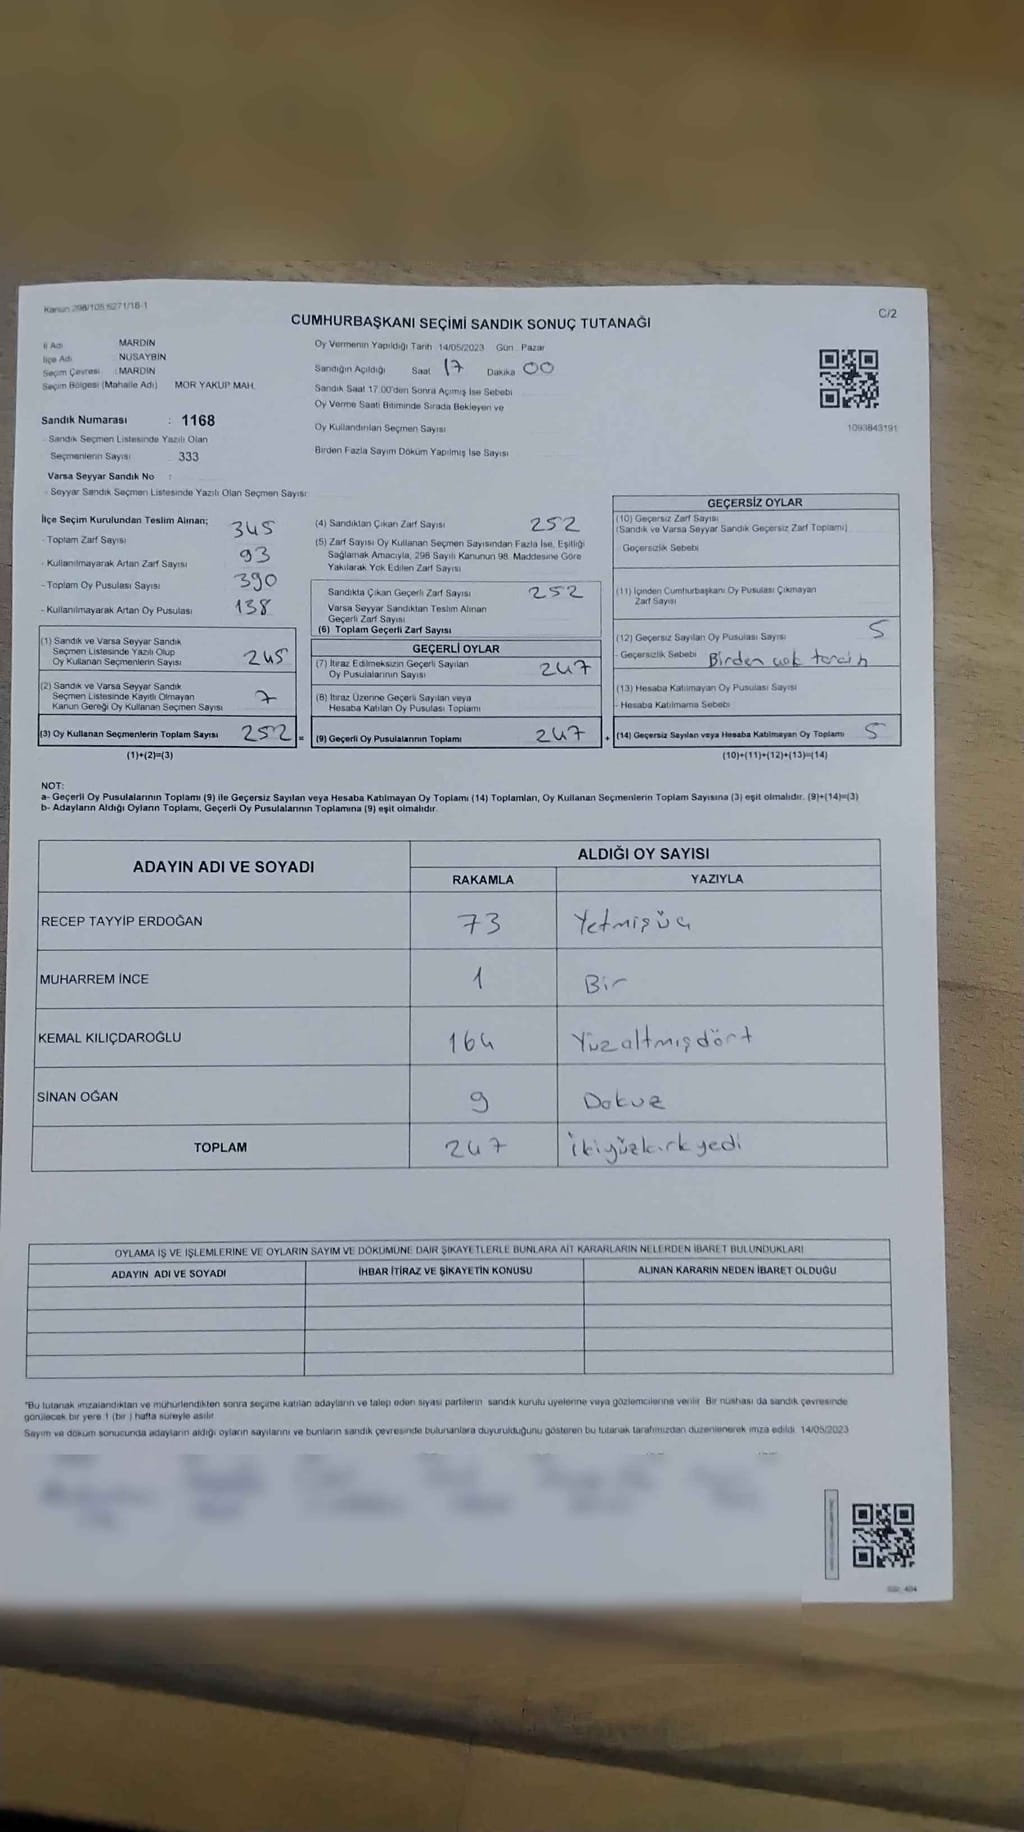 Kanun 298/105,6271/16-1
C/2
CUMHURBAŞKANI SEÇİMİ SANDIK SONUÇ TUTANAĞI
İl Adı : MARDİN
İlçe Adı : NUSAYBİN
Seçim Çevresi : MARDİN
Seçim Bölgesi (Mahalle Adı) MOR YAKUP MAH.
Sandık Numarası : 1168
- Sandık Seçmen Listesinde Yazılı Olan
Seçmenlerin Sayısı 333
Varsa Seyyar Sandık No :
- Seyyar Sandık Seçmen Listesinde Yazılı Olan Seçmen Sayısı:
Oy Vermenin Yapıldığı Tarih 14/05/2023 Gün Pazar
Sandığın Açıldığı Saat 17 Dakika 00
Sandık Saat 17.00'den Sonra Açılmış İse Sebebi
Oy Verme Saati Bitiminde Sırada Bekleyen ve
Oy Kullandırılan Seçmen Sayısı
Birden Fazla Sayım Döküm Yapılmış İse Sayısı
1093843191
İlçe Seçim Kurulundan Teslim Alınan;
- Toplam Zarf Sayısı 345
- Kullanılmayarak Artan Zarf Sayısı 93
- Toplam Oy Pusulası Sayısı 390
- Kullanılmayarak Artan Oy Pusulası 138
(1) Sandık ve Varsa Seyyar Sandık
Seçmen Listesinde Yazılı Olup
Oy Kullanan Seçmenlerin Sayısı 245
(2) Sandık ve Varsa Seyyar Sandık
Seçmen Listesinde Kayıtlı Olmayan
Kanun Gereği Oy Kullanan Seçmen Sayısı 7
(3) Oy Kullanan Seçmenlerin Toplam Sayısı 252 =
(1)+(2)=(3)
(4) Sandıktan Çıkan Zarf Sayısı 252
(5) Zarf Sayısı Oy Kullanan Seçmen Sayısından Fazla İse, Eşitliği
Sağlamak Amacıyla, 298 Sayılı Kanunun 98. Maddesine Göre
Yakılarak Yok Edilen Zarf Sayısı
Sandıkta Çıkan Geçerli Zarf Sayısı 252
Varsa Seyyar Sandıktan Teslim Alınan
Geçerli Zarf Sayısı
(6) Toplam Geçerli Zarf Sayısı
GEÇERLİ OYLAR
(7) İtiraz Edilmeksizin Geçerli Sayılan
Oy Pusulalarının Sayısı 247
(8) İtiraz Üzerine Geçerli Sayılan veya
Hesaba Katılan Oy Pusulası Toplamı
(9) Geçerli Oy Pusulalarının Toplamı 247 +
GEÇERSİZ OYLAR
(10) Geçersiz Zarf Sayısı
(Sandık ve Varsa Seyyar Sandık Geçersiz Zarf Toplamı)
- Geçersizlik Sebebi
(11) İçinden Cumhurbaşkanı Oy Pusulası Çıkmayan
Zarf Sayısı
(12) Geçersiz Sayılan Oy Pusulası Sayısı 5
- Geçersizlik Sebebi Birden çok tercih
(13) Hesaba Katılmayan Oy Pusulası Sayısı
- Hesaba Katılmama Sebebi
(14) Geçersiz Sayılan veya Hesaba Katılmayan Oy Toplamı 5
(10)+(11)+(12)+(13)=(14)
NOT:
a- Geçerli Oy Pusulalarının Toplamı (9) ile Geçersiz Sayılan veya Hesaba Katılmayan Oy Toplamı (14) Toplamları, Oy Kullanan Seçmenlerin Toplam Sayısına (3) eşit olmalıdır. (9)+(14)=(3)
b- Adayların Aldığı Oyların Toplamı, Geçerli Oy Pusulalarının Toplamına (9) eşit olmalıdır.
ADAYIN ADI VE SOYADI
ALDIĞI OY SAYISI
RAKAMLA YAZIYLA
RECEP TAYYİP ERDOĞAN 73 Yetmişüç
MUHARREM İNCE 1 Bir
KEMAL KILIÇDAROĞLU 164 Yüzaltmışdört
SİNAN OĞAN 9 Dokuz
TOPLAM 247 ikiyüzkırkyedi
OYLAMA İŞ VE İŞLEMLERİNE VE OYLARIN SAYIM VE DÖKÜMÜNE DAİR ŞİKAYETLERLE BUNLARA AİT KARARLARIN NELERDEN İBARET BULUNDUKLARI
ADAYIN ADI VE SOYADI İHBAR İTİRAZ VE ŞİKAYETİN KONUSU ALINAN KARARIN NEDEN İBARET OLDUĞU
"Bu tutanak imzalandıktan ve mühürlendikten sonra seçime katılan adayların ve talep eden siyasi partilerin sandık kurulu üyelerine veya gözlemcilerine verilir. Bir nüshası da sandık çevresinde
görülecek bir yere 1 (bir) hafta süreyle asılır.
Sayım ve döküm sonucunda adayların aldığı oyların sayılarını ve bunların sandık çevresinde bulunanlara duyurulduğunu gösteren bu tutanak tarafımızdan düzenlenerek imza edildi. 14/05/2023